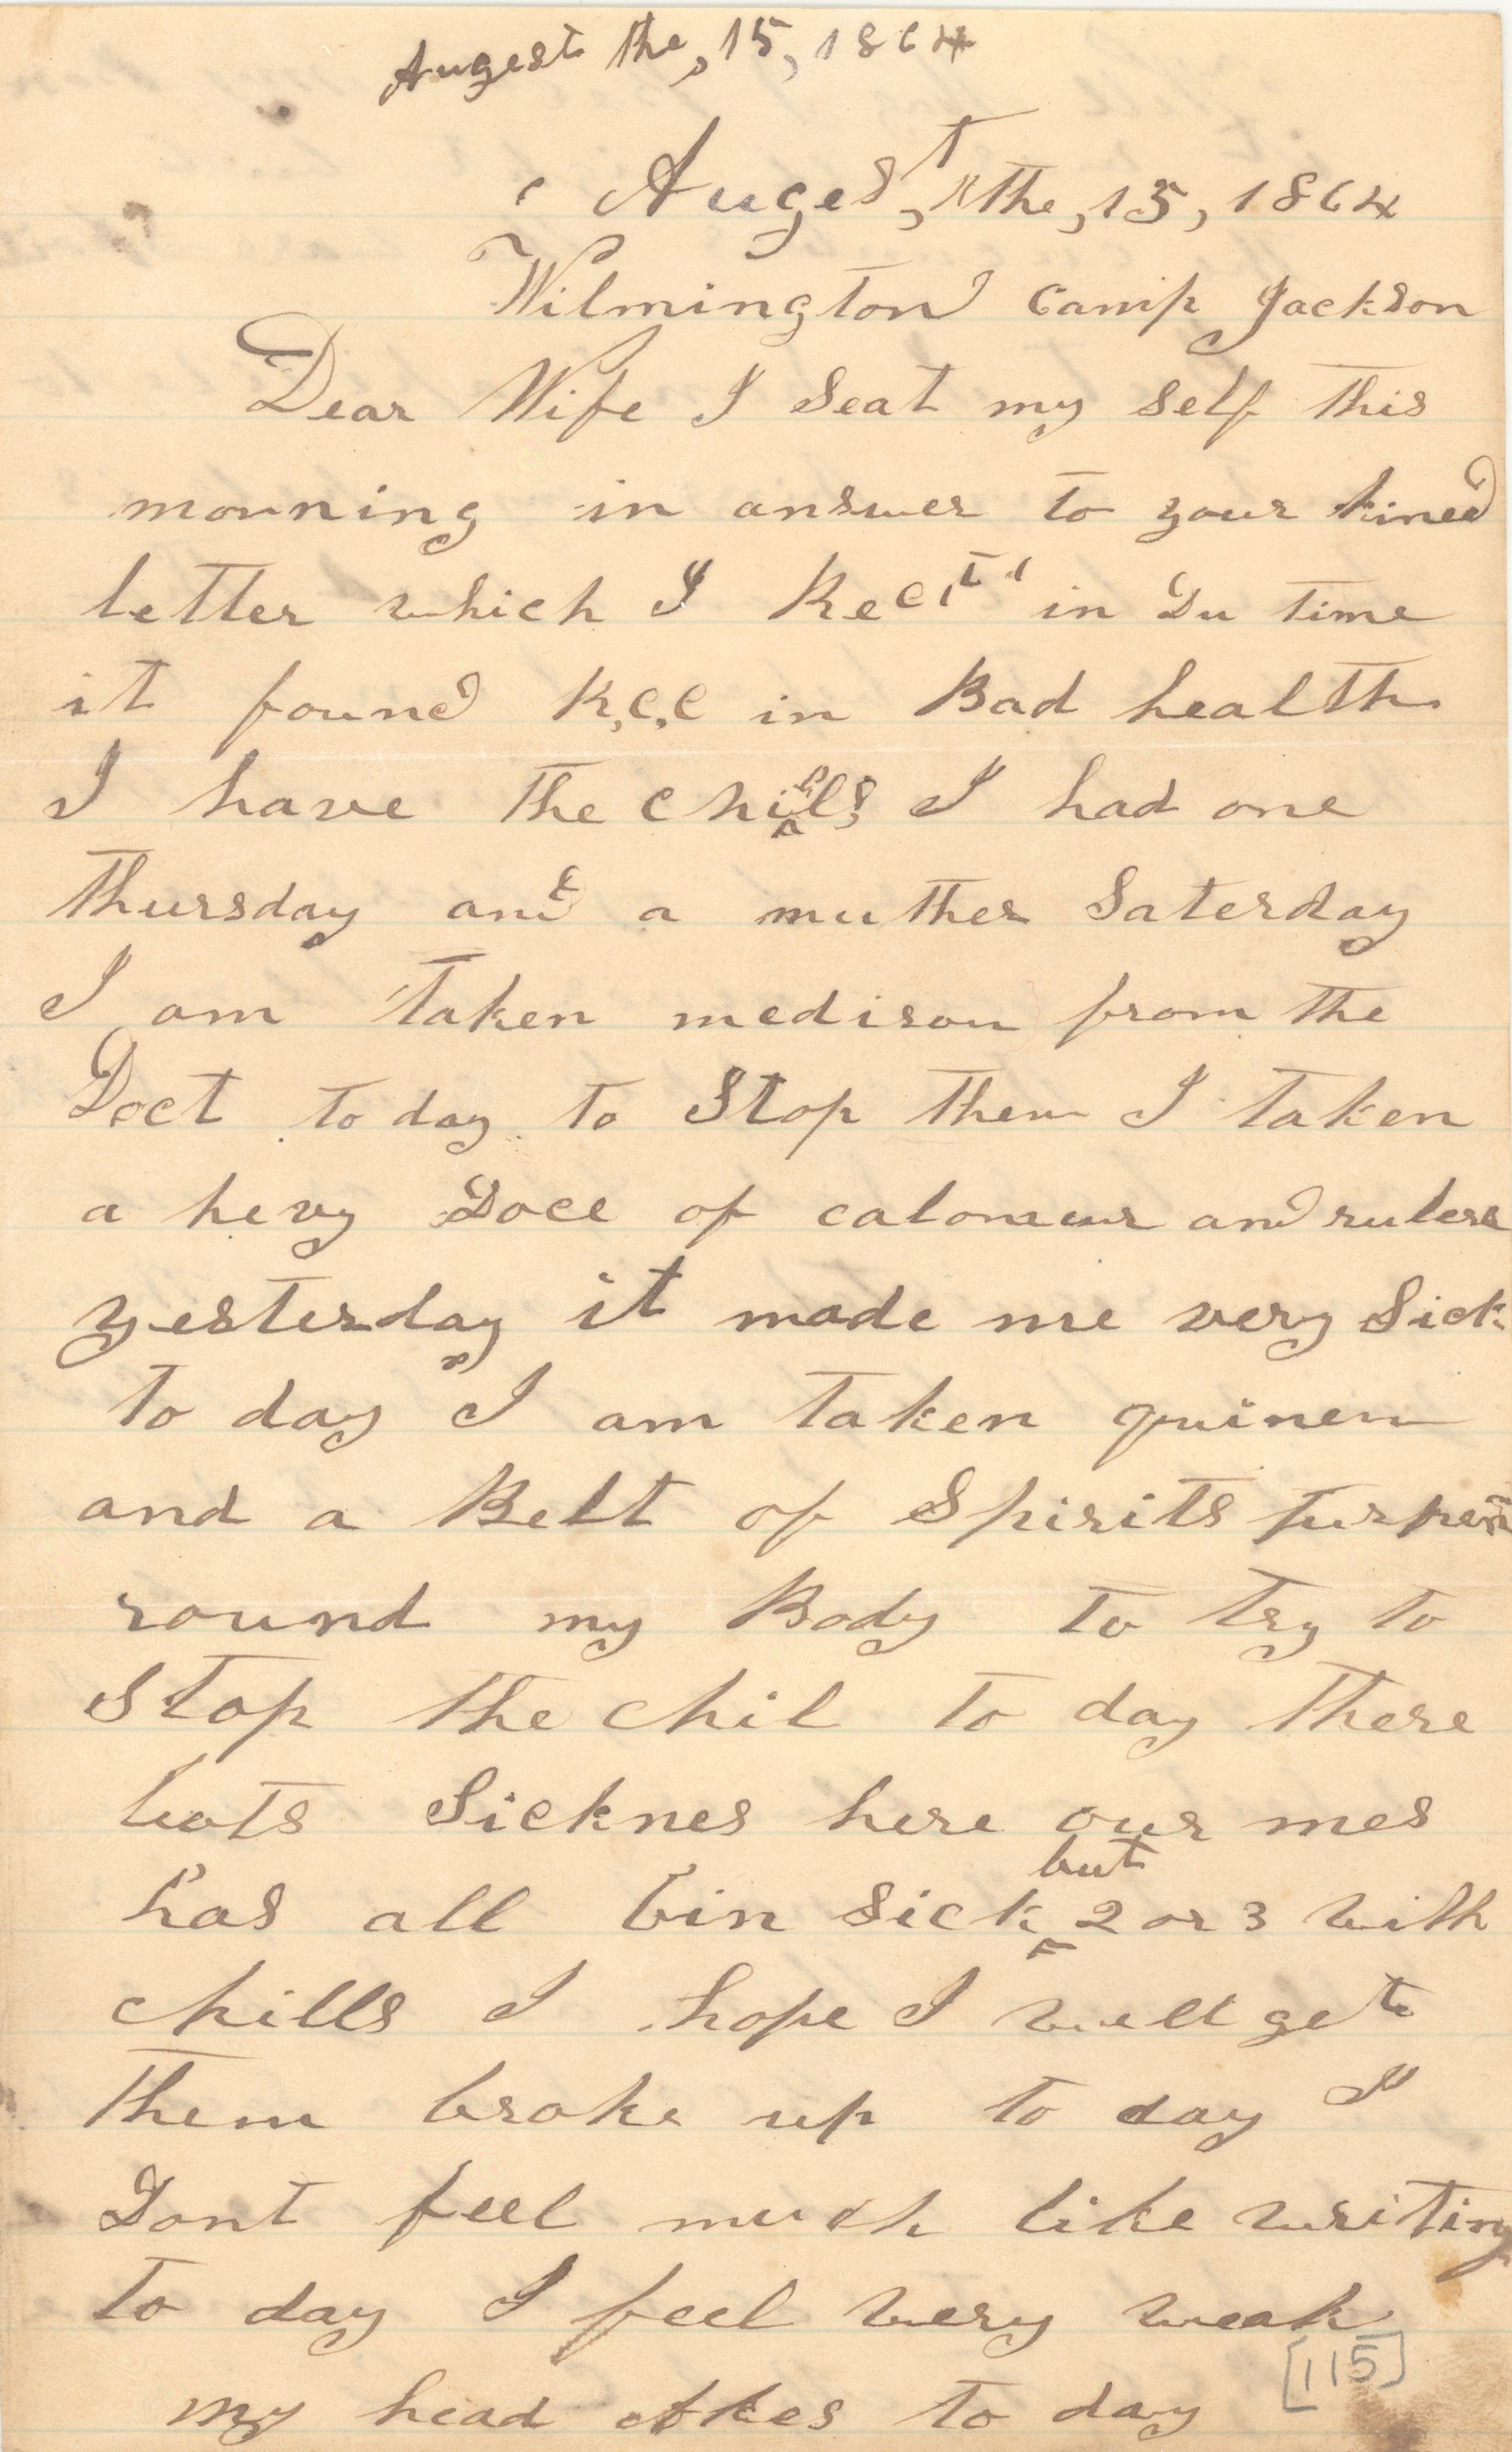 Augest the, 15, 1864
Augest, the, 15, 1864
Wilmington Camp Jackson
Dear Wife I Seat my Self this
morning in answer to your kined
letter which I Rect in Du time
it found R,C,C in Bad health
I have the Chills I had one
thursday and a muther Saterday
I am taken medison from the
Doct to day to Stop them I taken
a hevy Doce of and
yesterday it made me very Sick
to day I am taken quinen
and a Belt of Spirits turpen
round my Body to try to
Stop the chil to day there
lots Sicknes here our mes
has all bin Sick but 2 or 3 with
chills I hope I will get
them broke up to day I
Dont feel much like writing
to day I feel very weak
my head akes to day
[115]